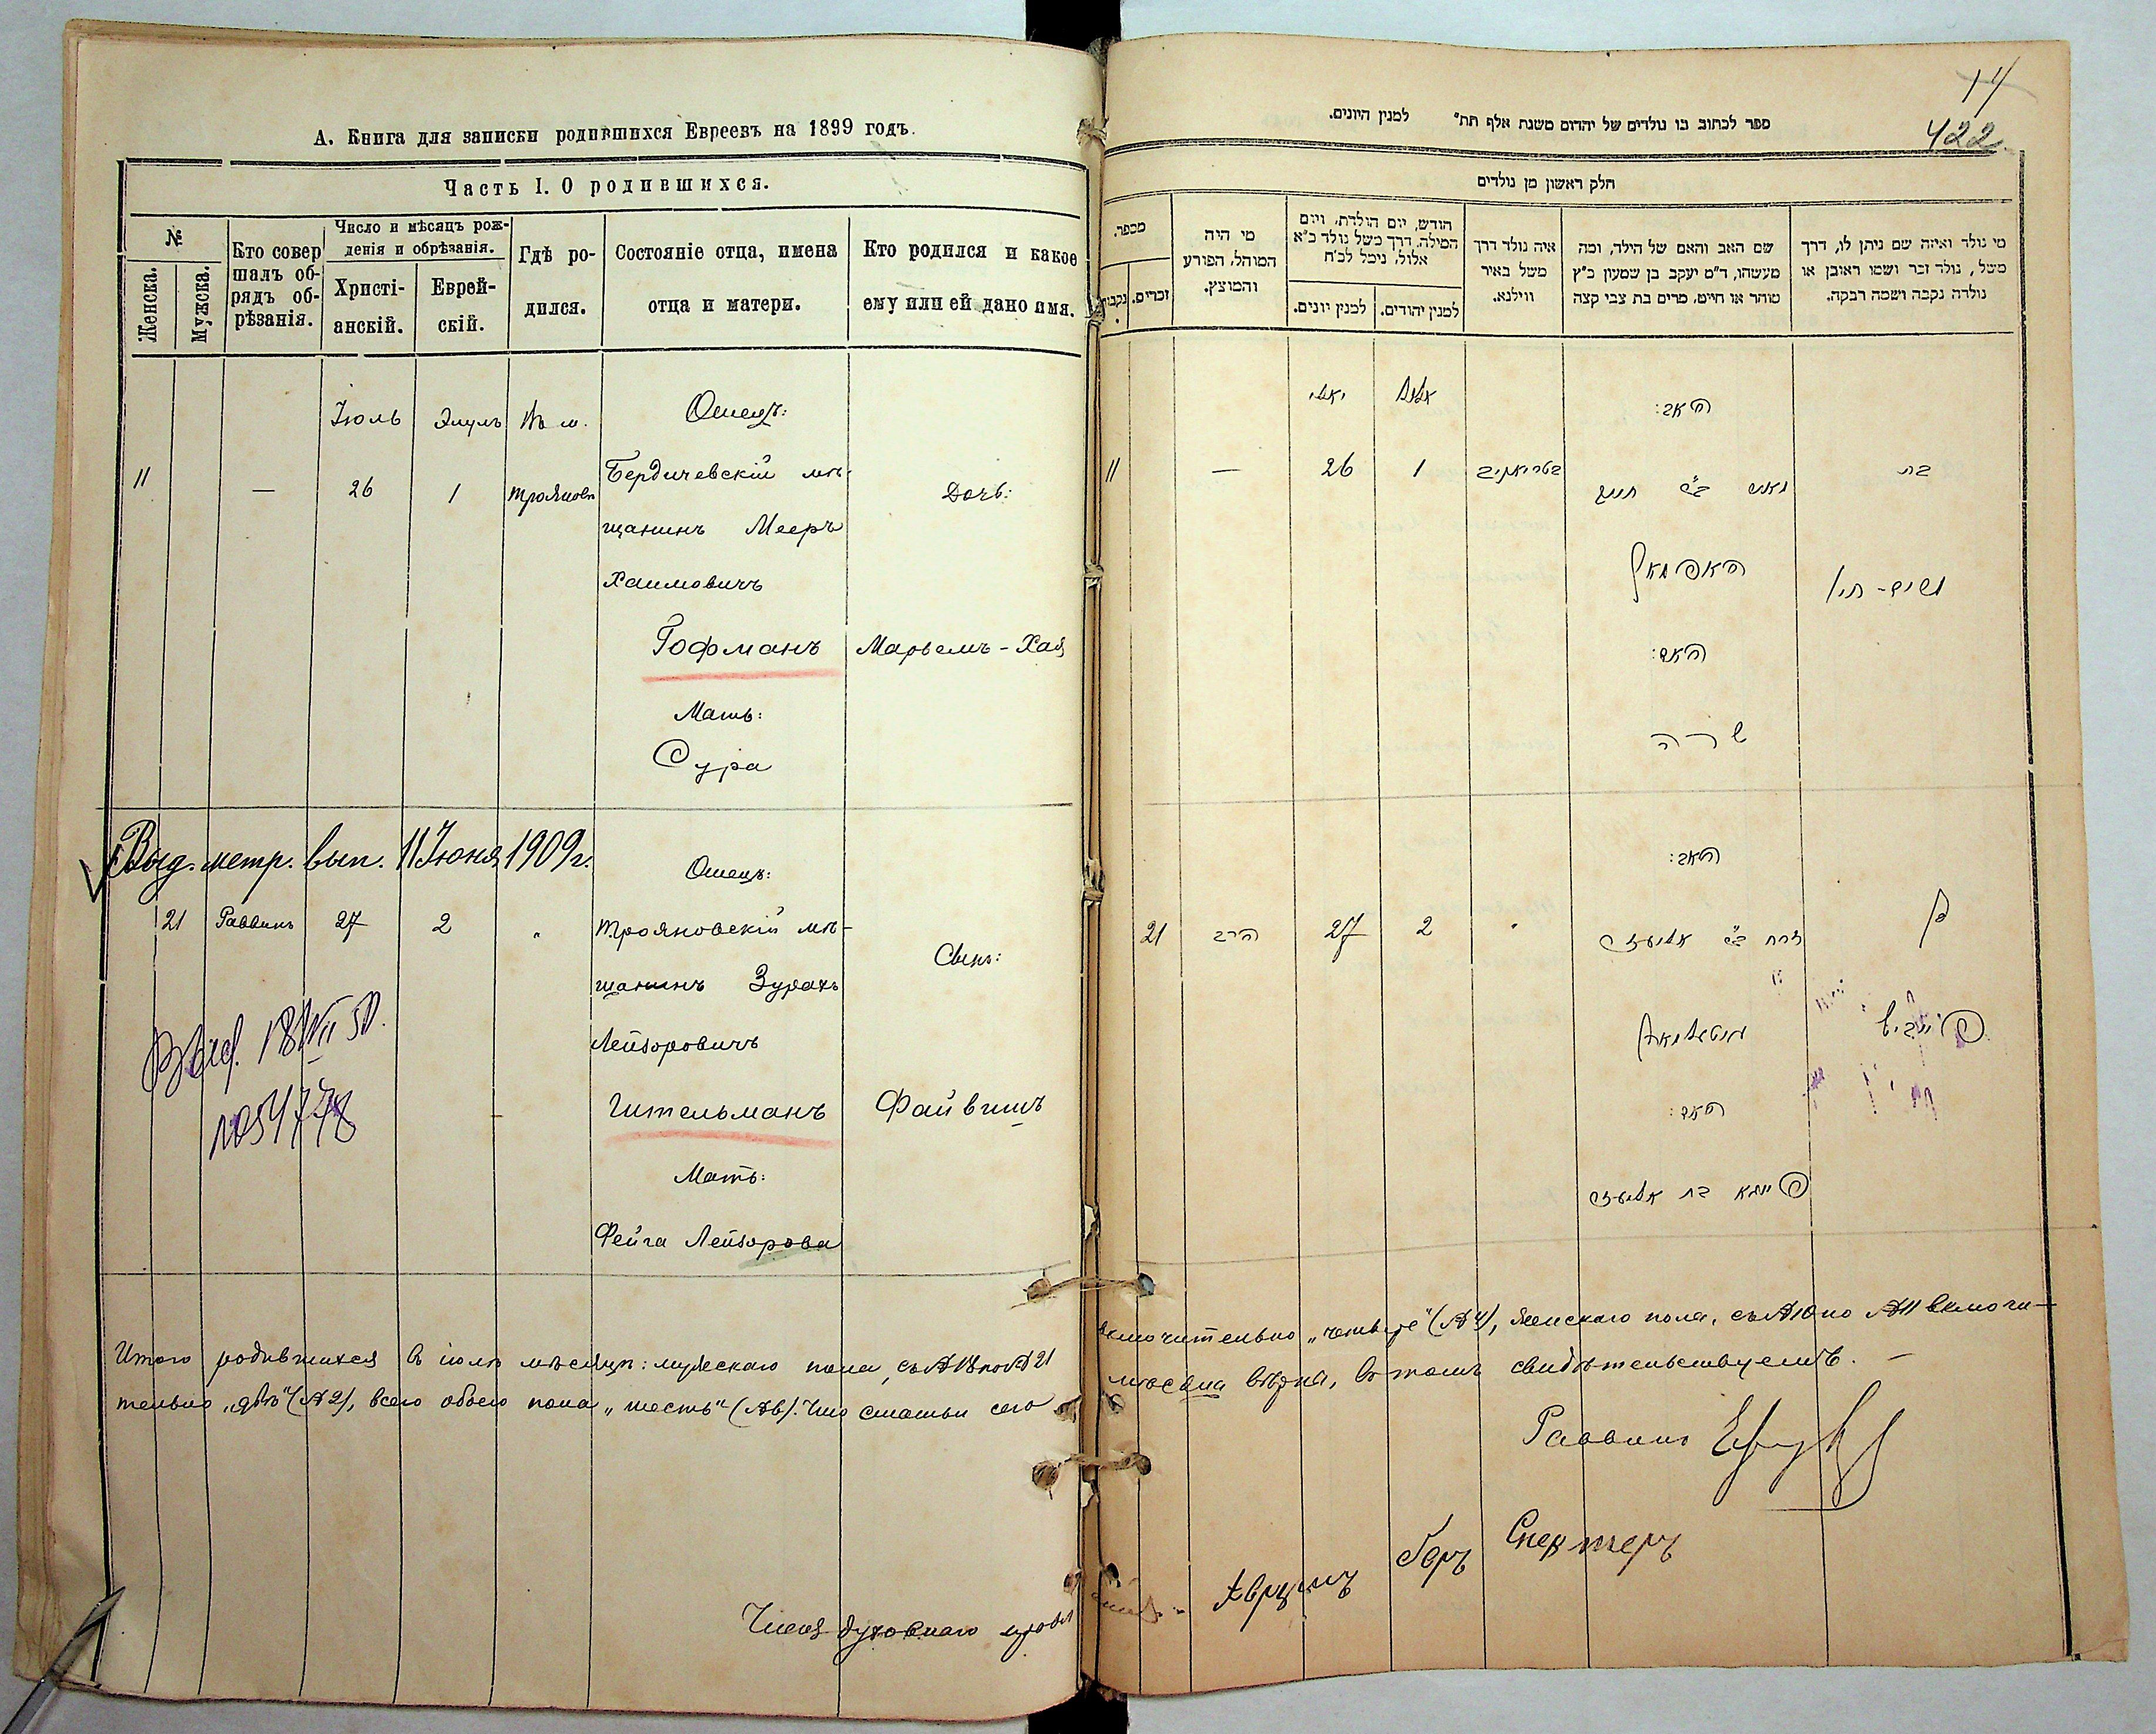 А. Книга для записки родившихся Евреевъ на 1899 годъ.
Часть I. О родившихся.
№
Женска.
Мужска.
Кто совершалъ обрядъ обрѣзанія.
Число и мѣсяцъ рожденія и обрѣзанія.
Христіанскій.
Еврейскій.
Гдѣ родился.
Состояніе отца, имена отца и матери.
Кто родился и какое ему или ей дано имя.
Іюль Элулъ Въ м. Отецъ:
11 — 26 1 Трояновѣ Бердичевскій мѣ-
щанинъ Мееръ Дочь:
Хаимовичъ
Гофманъ Марьемъ-Хая
Мать:
Сура
Выд. метр. вып. 11 Іюня 1909 г.
Отецъ:
21 Раввинъ 27 2 „ Трояновскій мѣ-
щанинъ Зурахъ Сынъ:
Лейзоровичъ
Гительманъ Файвишъ
Мать:
Фейга Лейзорова
Итого родившихся въ іюлѣ мѣсяцѣ: мужескаго пола, съ №18 по №21
тельно „двѣ" (№2), всего обоего пола „шесть" (№6). Что статьи сего
Членъ духовнаго правл
14
422.
ספר לכתוב בו נולדים של יהדום משנת אלף תת״ למנין היונים.
חלק ראשון מן נולדים
מספר.
נקבות
זכרים.
מי היה המוהל, הפורע והמוצץ.
חודש, יום הולדת, ויום המילה, דרך משל נולד כ״א אלול, נימל לכ״ח
למנין יונים.
למנין יהודים.
איה נולד דרך משל באיר ווילנא.
שם האב והאם של הילד, ומה מעשהו, ד״מ יעקב בן שמעון כ״ץ סוהר או חייט, מרים בת צבי קצה
מי נולד ואיזה שם ניתן לו, דרך משל, נולד זכר ושמו ראובן או נולדה נקבה ושמה רבקה.
יולי אלול האב:
11 — 26 1 בטריאניב מאיר ב״ר חיים בת
האפמאן מרים-חי׳
האם:
שרה
האב:
21 הרב 27 2 „ זרח ב״ר אליעזר בן
גיטעלמאן פייביש
האם:
פייגא בת אליעזר
включительно „четыре" (№4), женскаго пола, съ №10 по №11 включи-
мѣсяца вѣрна, въ томъ свидѣтельствуемъ. —
Раввинъ
Аврумъ Беръ